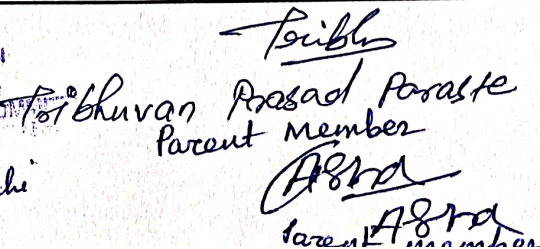 Tribh
Tribhuvan Prasad Paraste
Parent Member
chi
Asha
Asha
Parent member